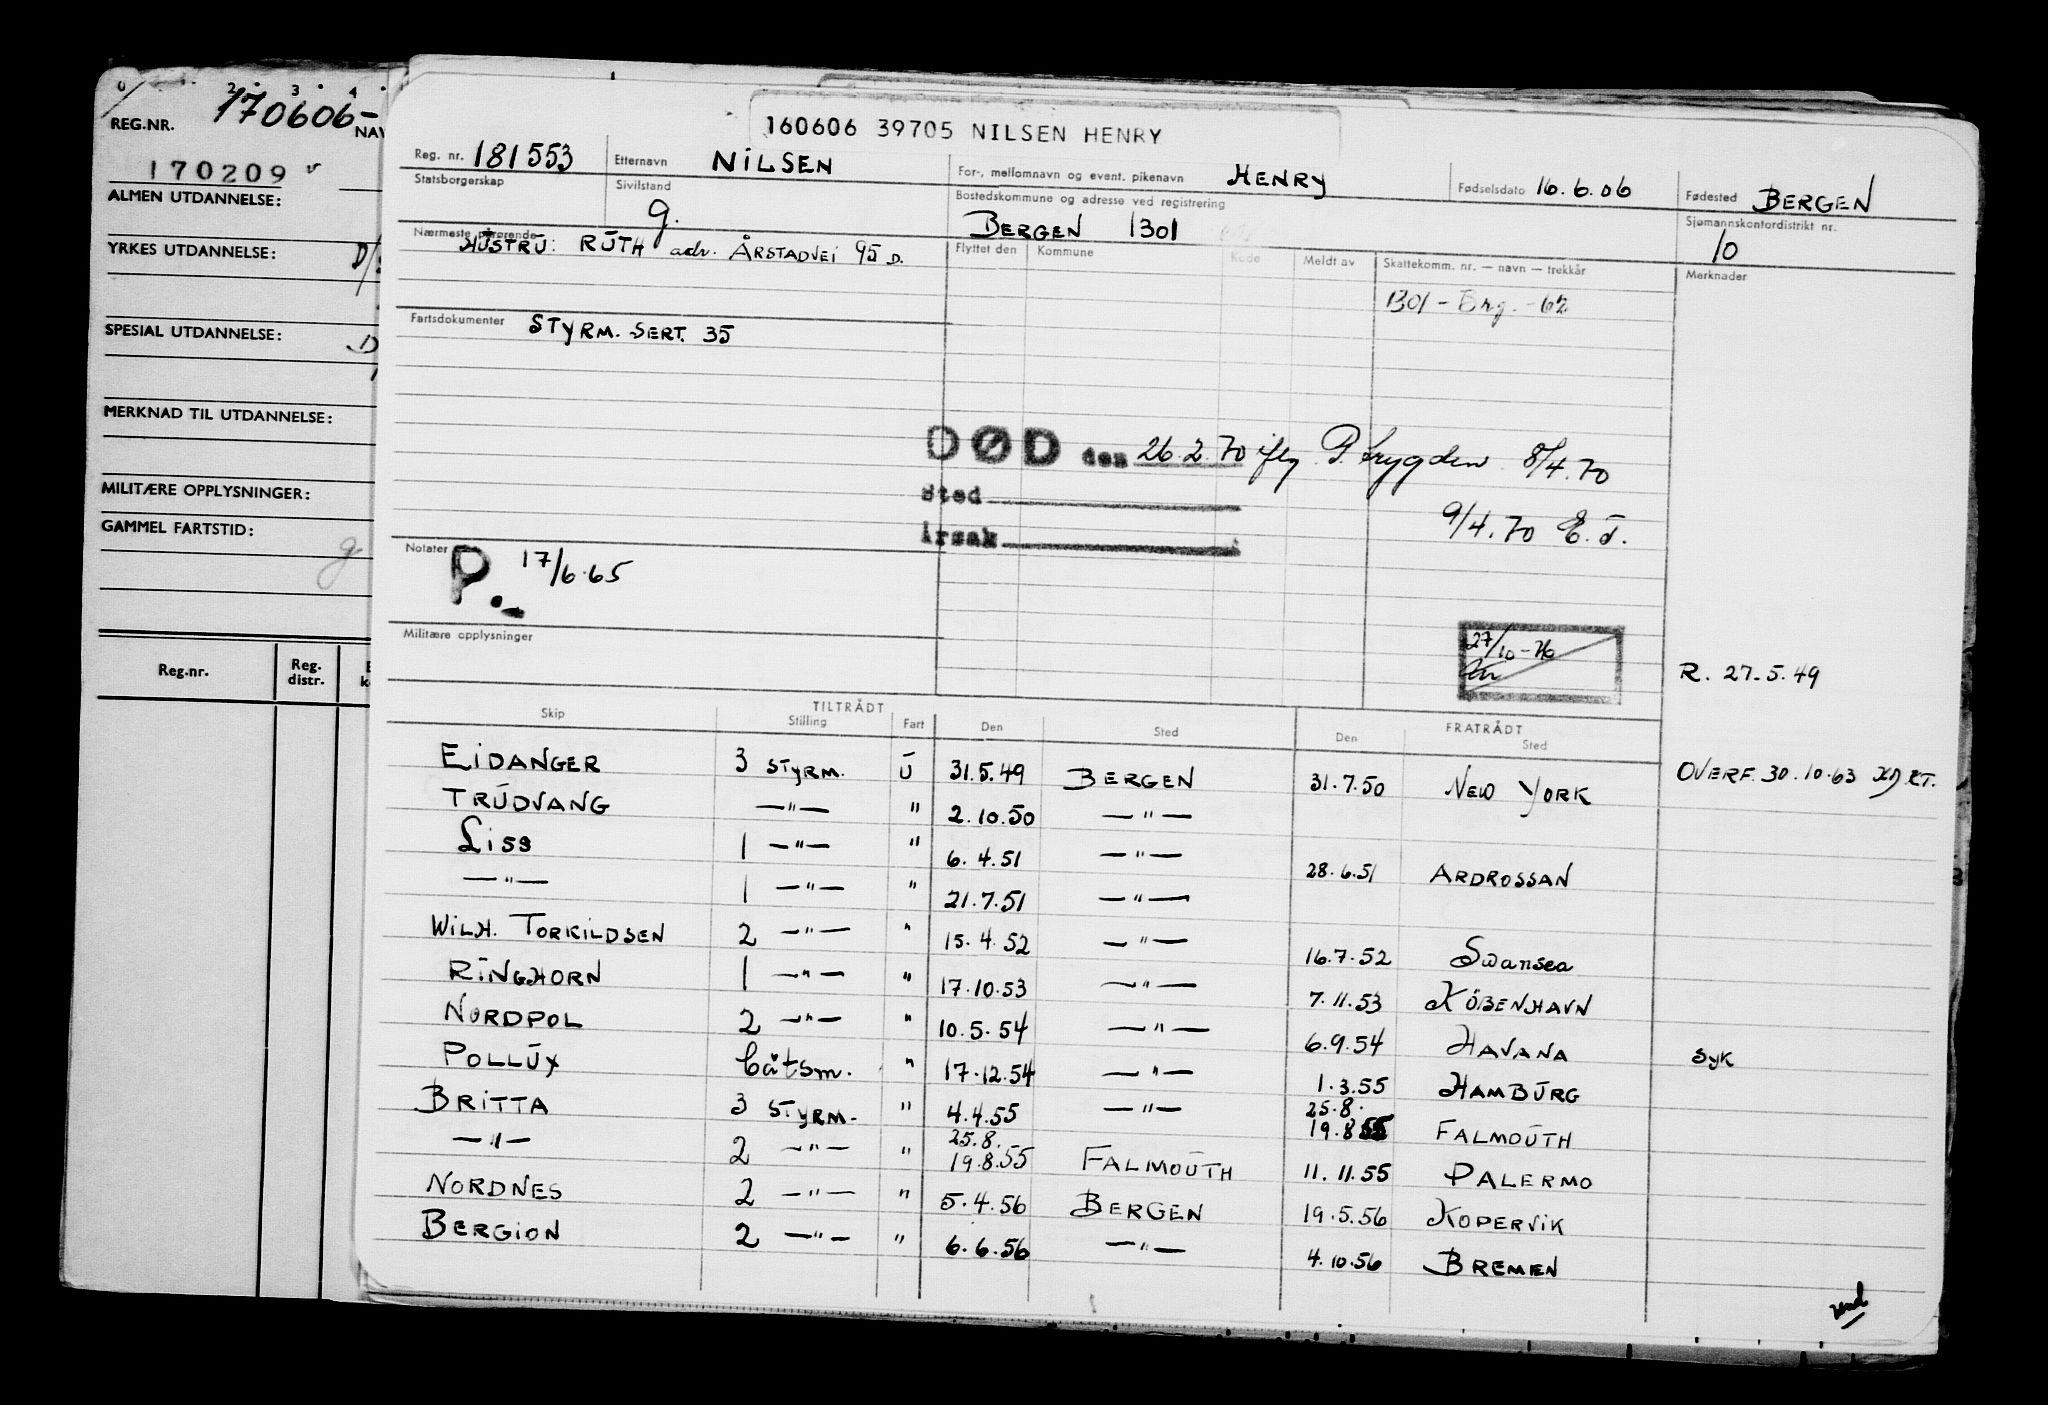 0 2 3 4
REG.NR. 170606-
NAV
170209
ALMEN UTDANNELSE:
YRKES UTDANNELSE:
SPESIAL UTDANNELSE: D
MERKNAD TIL UTDANNELSE:
MILITÆRE OPPLYSNINGER:
GAMMEL FARTSTID:
g
Reg.nr. Reg. distr.
160606 39705 NILSEN HENRY
Reg. nr. 181553 Etternavn NILSEN For-, mellomnavn og event. pikenavn HENRY Fødselsdato 16.6.06 Fødested BERGEN
Statsborgerskap Sivilstand g. Bostedskommune og adresse ved registrering BERGEN 1301 Sjømannskontordistrikt nr. 10
Nærmeste pårørende HUSTRU: RUTH adr. ÅRSTADVEI 95 D.
Flyttet den Kommune Kode Meldt av Skattekomm. nr. — navn — trekkår Merknader
1301 - Brg. - 62
Fartsdokumenter STYRM. SERT. 35
DØD den 26.2.70 iflg P.trygden 8/4.70
Sted
Årsak
9/4.70 E.T.
Notater P.- 17/6.65
Militære opplysninger
27/10-76
R. 27.5.49
Skip TILTRÅDT Stilling Fart Den Sted FRATRÅDT Den Sted
EIDANGER 3 STYRM. U 31.5.49 BERGEN 31.7.50 NEW YORK OVERF. 30.10.63
TRUDVANG —"— " 2.10.50 —"—
LISS 1 —"— " 6.4.51 —"— 28.6.51 ARDROSSAN
—"— 1 —"— " 21.7.51 —"—
WILH. TORKILDSEN 2 —"— " 15.4.52 —"— 16.7.52 Swansea
RINGHORN 1 —"— " 17.10.53 —"— 7.11.53 KÖBENHAVN
NORDPOL 2 —"— " 10.5.54 —"— 6.9.54 HAVANA SYK
POLLUX båtsm. " 17.12.54 —"— 1.3.55 HAMBURG
BRITTA 3 STYRM. " 4.4.55 —"— 25.8. 19.8.55 FALMOUTH
—"— 2 —"— " 25.8. 19.8.55 FALMOUTH 11.11.55 PALERMO
NORDNES 2 —"— " 5.4.56 BERGEN 19.5.56 KOPERVIK
BERGION 2 —"— " 6.6.56 —"— 4.10.56 BREMEN
vend